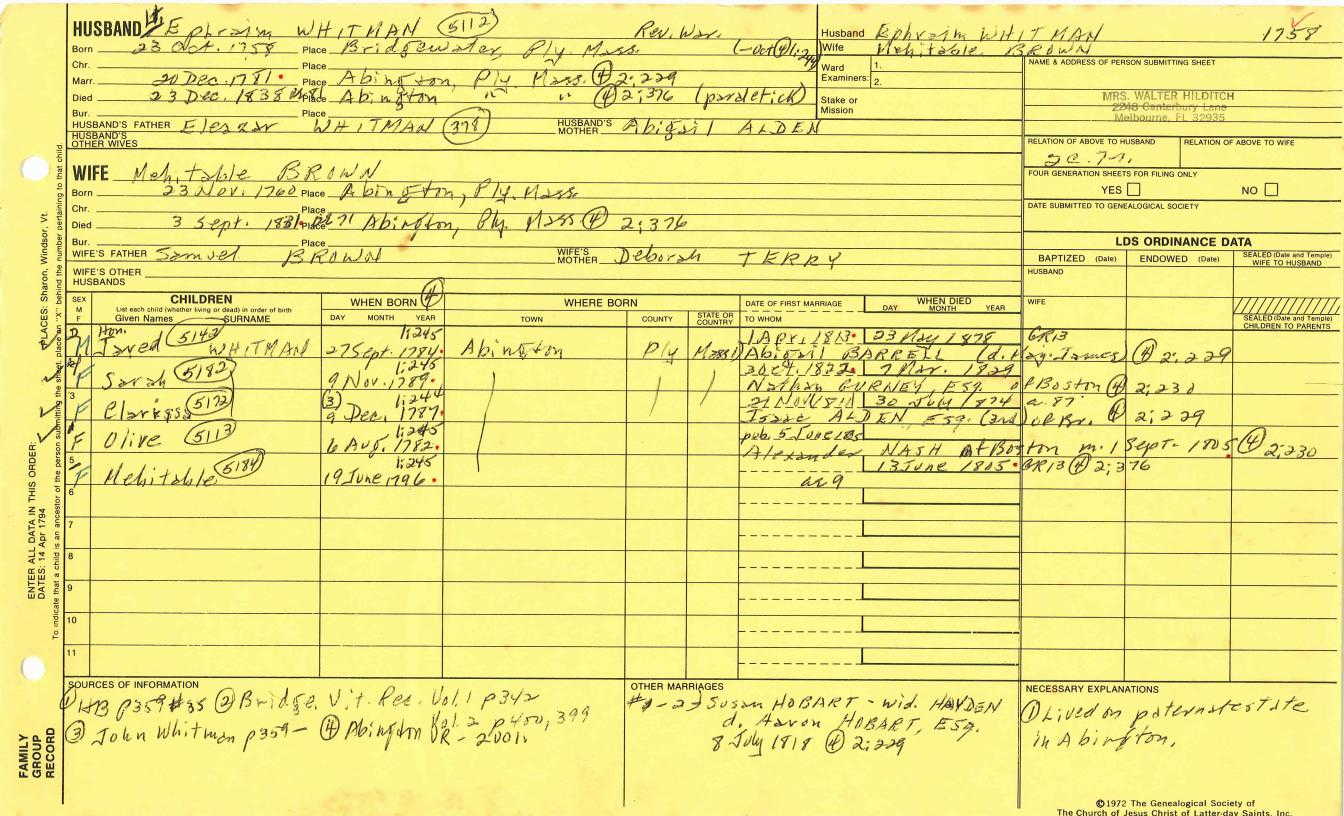 HUSBAND Ephraim WHITMAN 5112 Rev. War.
Born 23 Oct. 1758 Place Bridgewater, Ply. Mass.
Chr. Place
Marr. 20 Dec. 1781 Place Abington, Ply. Mass. ④ 2:229
Died 23 Dec. 1838 Place Abington " " ④ 2;376 (paraletick)
Bur. Place
HUSBAND'S FATHER Eleazar WHITMAN 378 HUSBAND'S MOTHER Abigail ALDEN
HUSBAND'S OTHER WIVES
Husband Ephraim WHITMAN 1758
Wife Mehitable BROWN
Ward Examiners: 1.
2.
Stake or Mission
NAME & ADDRESS OF PERSON SUBMITTING SHEET
MRS. WALTER HILDITCH
2248 Canterbury Lane
Melbourne, FL 32935
RELATION OF ABOVE TO HUSBAND RELATION OF ABOVE TO WIFE
FOUR GENERATION SHEETS FOR FILING ONLY
YES NO
DATE SUBMITTED TO GENEALOGICAL SOCIETY
WIFE Mehitable BROWN
Born 23 Nov. 1760 Place Abington, Ply. Mass
Chr. Place
Died 3 Sept. 1831 Place Abington, Ply. Mass ④ 2;376
Bur. Place
WIFE'S FATHER Samuel BROWN WIFE'S MOTHER Deborah TERRY
WIFE'S OTHER HUSBANDS
LDS ORDINANCE DATA
BAPTIZED (Date) ENDOWED (Date) SEALED (Date and Temple) WIFE TO HUSBAND
HUSBAND
WIFE
SEALED (Date and Temple) CHILDREN TO PARENTS
SEX M F CHILDREN WHEN BORN ④ WHERE BORN DATE OF FIRST MARRIAGE WHEN DIED
List each child (whether living or dead) in order of birth
Given Names SURNAME DAY MONTH YEAR TOWN COUNTY STATE OR COUNTRY TO WHOM DAY MONTH YEAR
Hon. 5143 1;245 1 Apr. 1813 23 May 1878 GR13
M Jared WHITMAN 27 Sept. 1784 Abington Ply Mass Abigail BARRELL (d. James) ④ 2:229
5182 1:245 7 Mar. 1829
F Sarah 9 Nov. 1789 Nathan GURNEY, Esq. of Boston ④ 2;230
3 5172 ③ 1;244 30 July 1874 a. 87
F Clarissa 9 Dec. 1787 Isaac ALDEN, Esq. (2nd) of Br. ④ 2;229
1:245 pub. 5 June
F Olive 5113 6 Aug. 1782 Alexander NASH of Boston m. 1 Sept. 1805 ④ 2;230
5 5184 1;245 13 June 1805 GR13 ④ 2;376
F Mehitable 19 June 1796 ae 9
6
7
8
9
10
11
SOURCES OF INFORMATION
① HB p359 #35 ② Bridge. Vit. Rec. Vol. 1 p342
③ John Whitman p359 — ④ Abington VR - Vol. 2 p
OTHER MARRIAGES
#1-2) Susan HOBART - wid. HAYDEN
d. Aaron HOBART, Esq.
8 July 1818 ④ 2;229
NECESSARY EXPLANATIONS
① Lived on paternal estate
in Abington.
ENTER ALL DATA IN THIS ORDER:
DATES: 14 Apr 1794
PLACES: Sharon, Windsor, Vt.
To indicate that a child is an ancestor of the person submitting the sheet, place an "X" behind the number pertaining to that child.
FAMILY
GROUP
RECORD
©1972 The Genealogical Society of
The Church of Jesus Christ of Latter-day Saints, Inc.